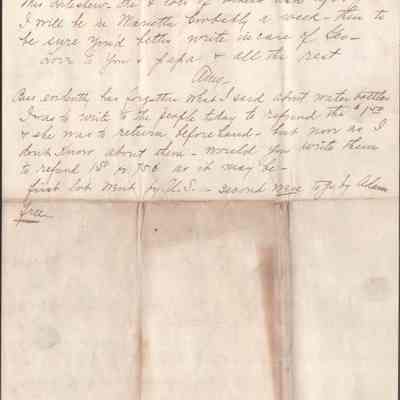 I will be in Marietta Probably a week - then to
be sure you'd better write in care of Geo -
love to you & papa & all the rest
evidently has forgotten what I said about water bottles
I was to write to the people today to refund the $1.50
& she was to return beforehand - but now as I
don't know about them - would you write them
to refund 1.50 or 75¢ as it may be -
first lot went by U.S. - second were to go by Adam
free -